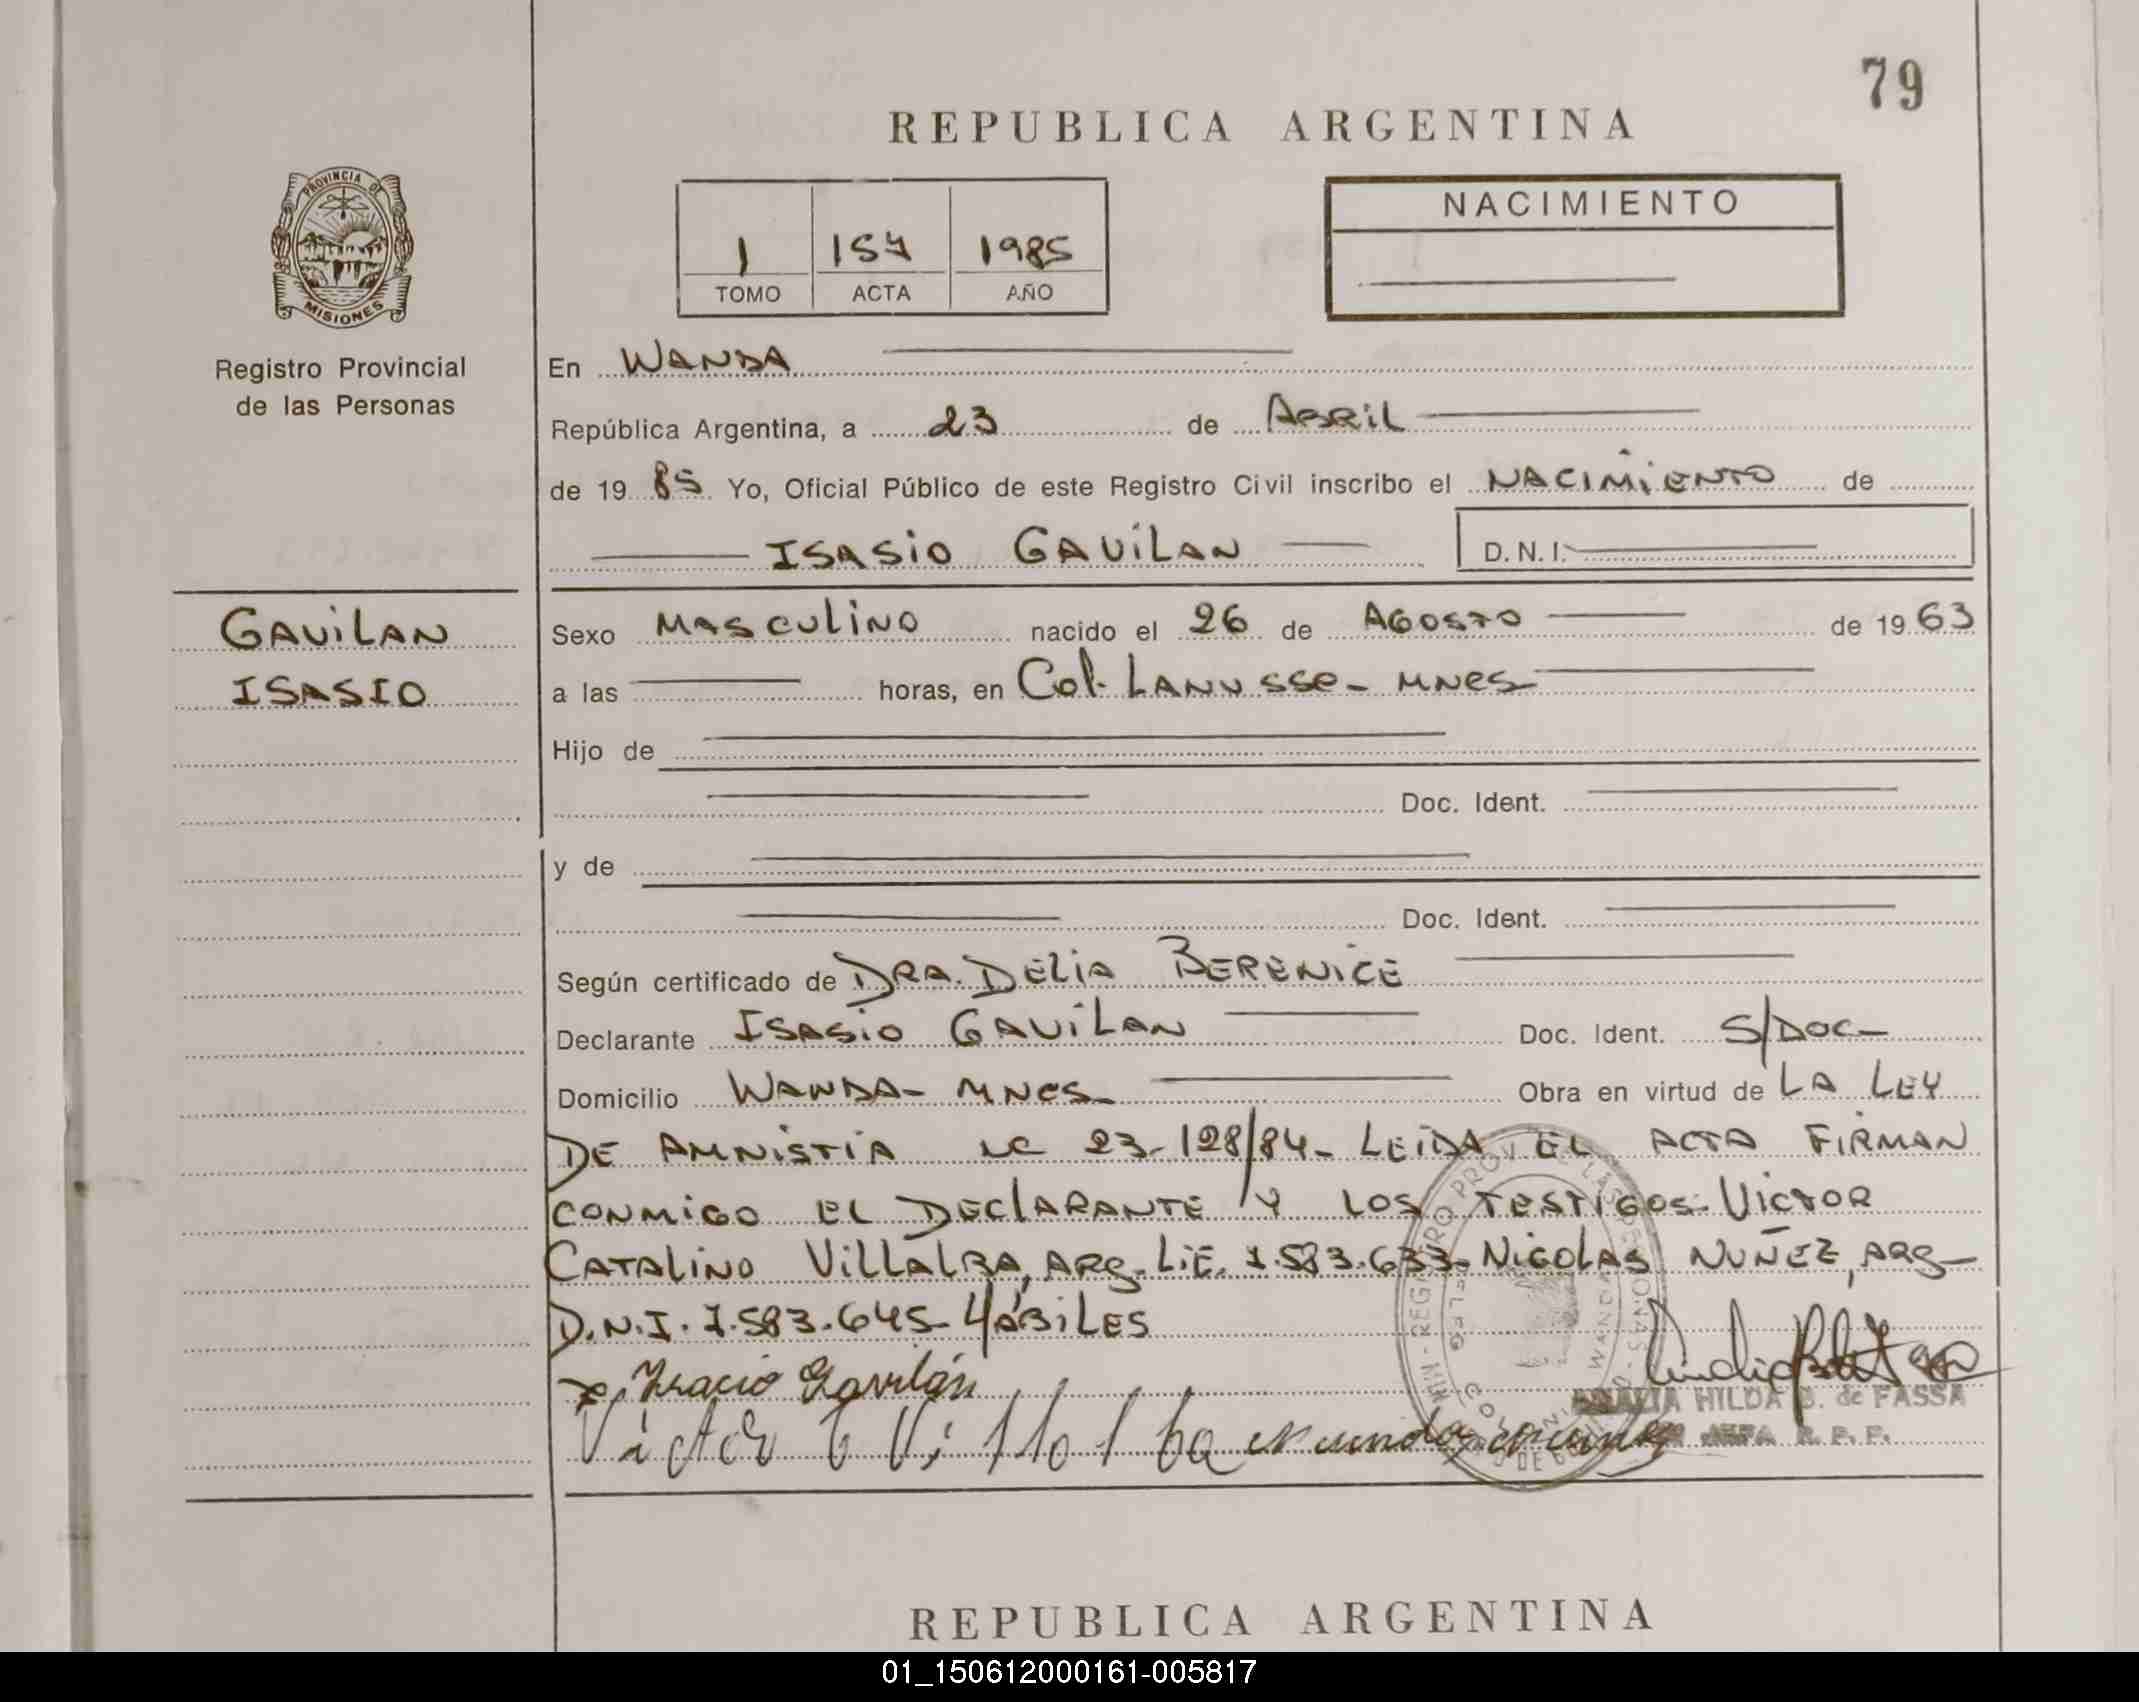 79
REPUBLICA ARGENTINA
PROVINCIA DE
MISIONES
Registro Provincial
de las Personas
1 157 1985
TOMO ACTA AÑO
NACIMIENTO
En WANDA
República Argentina, a 23 de ABRIL
de 19 85 Yo, Oficial Público de este Registro Civil inscribo el NACIMIENTO de
ISASIO GAVILAN D. N. I.
GAVILAN
ISASIO
Sexo MASCULINO nacido el 26 de AGOSTO de 19 63
a las horas, en Col. LANUSSE - MNES
Hijo de
Doc. Ident.
y de
Doc. Ident.
Según certificado de DRA. DELIA BERENICE
Declarante ISASIO GAVILAN Doc. Ident. S/DOC-
Domicilio WANDA - MNES- Obra en virtud de LA LEY
DE AMNISTIA 23-128/84- LEIDA EL ACTA FIRMAN
CONMIGO EL DECLARANTE Y LOS TESTIGOS: VICTOR
CATALINO VILLALBA, ARG. L.E. 7.583.633- NICOLAS NUÑEZ, ARG-
D.N.I. 7.583.645- HÁBILES
Isacio Gavilán
Victor C Villalba
HILDA B. de FASSA
JEFA R. P. P.
WANDA
REPUBLICA ARGENTINA
01_150612000161-005817